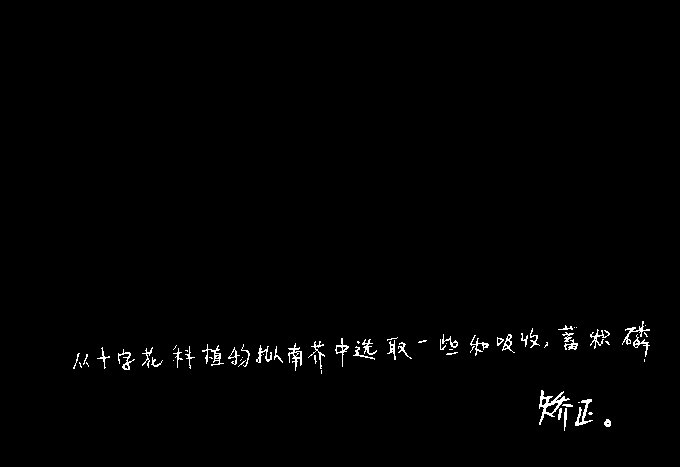 从十字花科植物拟南芥中选取一些和吸收,蓄积磷
矫正。